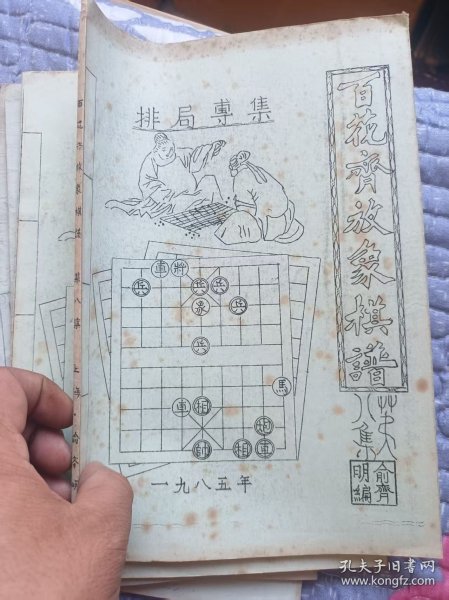 排局專集
百花齊放象棋譜
第八集
俞齊
明編
車 將
兵 兵 兵
象 兵
兵
馬
車 相
炮
帥 相 車
一九八五年
百花齐放象棋谱 第八集
孔夫子旧书网
www.kongfz.com